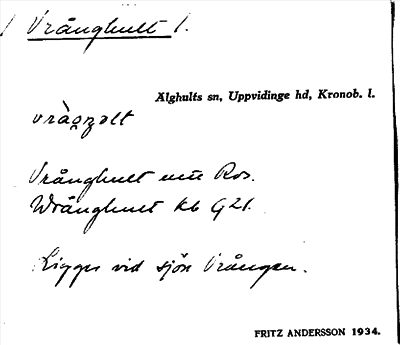 Vrånghult 1.
Älghults sn, Uppvidinge hd, Kronob. l.
Vrånghult Ros.
Wrånghult kb G21.
Ligger vid sjön Vrången.
FRITZ ANDERSSON 1934.